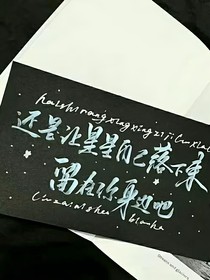 hai shi rang xing xing zi ji luo xia lai
还是让星星自己落下来
留在你身边吧
liu zai ni shen bian ba